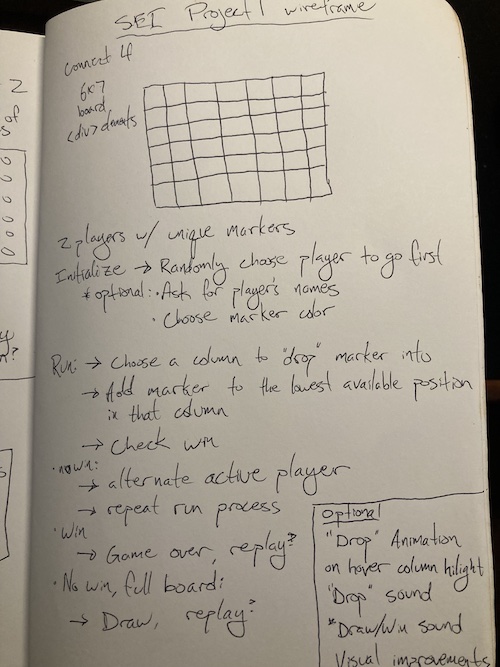 SEI Project 1 wireframe
connect 4
6x7
board
<div> elements
2 players w/ unique markers
Initialize → Randomly choose player to go first
* optional: · Ask for player's names
· Choose marker color
Run: → Choose a column to "drop" marker into
→ Add marker to the lowest available position
in that column
→ Check win
· no win:
→ alternate active player
→ repeat run process
· Win
→ Game over, replay?
· No win, full board:
→ Draw, replay?
Optional
"Drop" Animation
on hover column hilight
"Drop" sound
*Draw/Win sound
Visual improvements
2
of